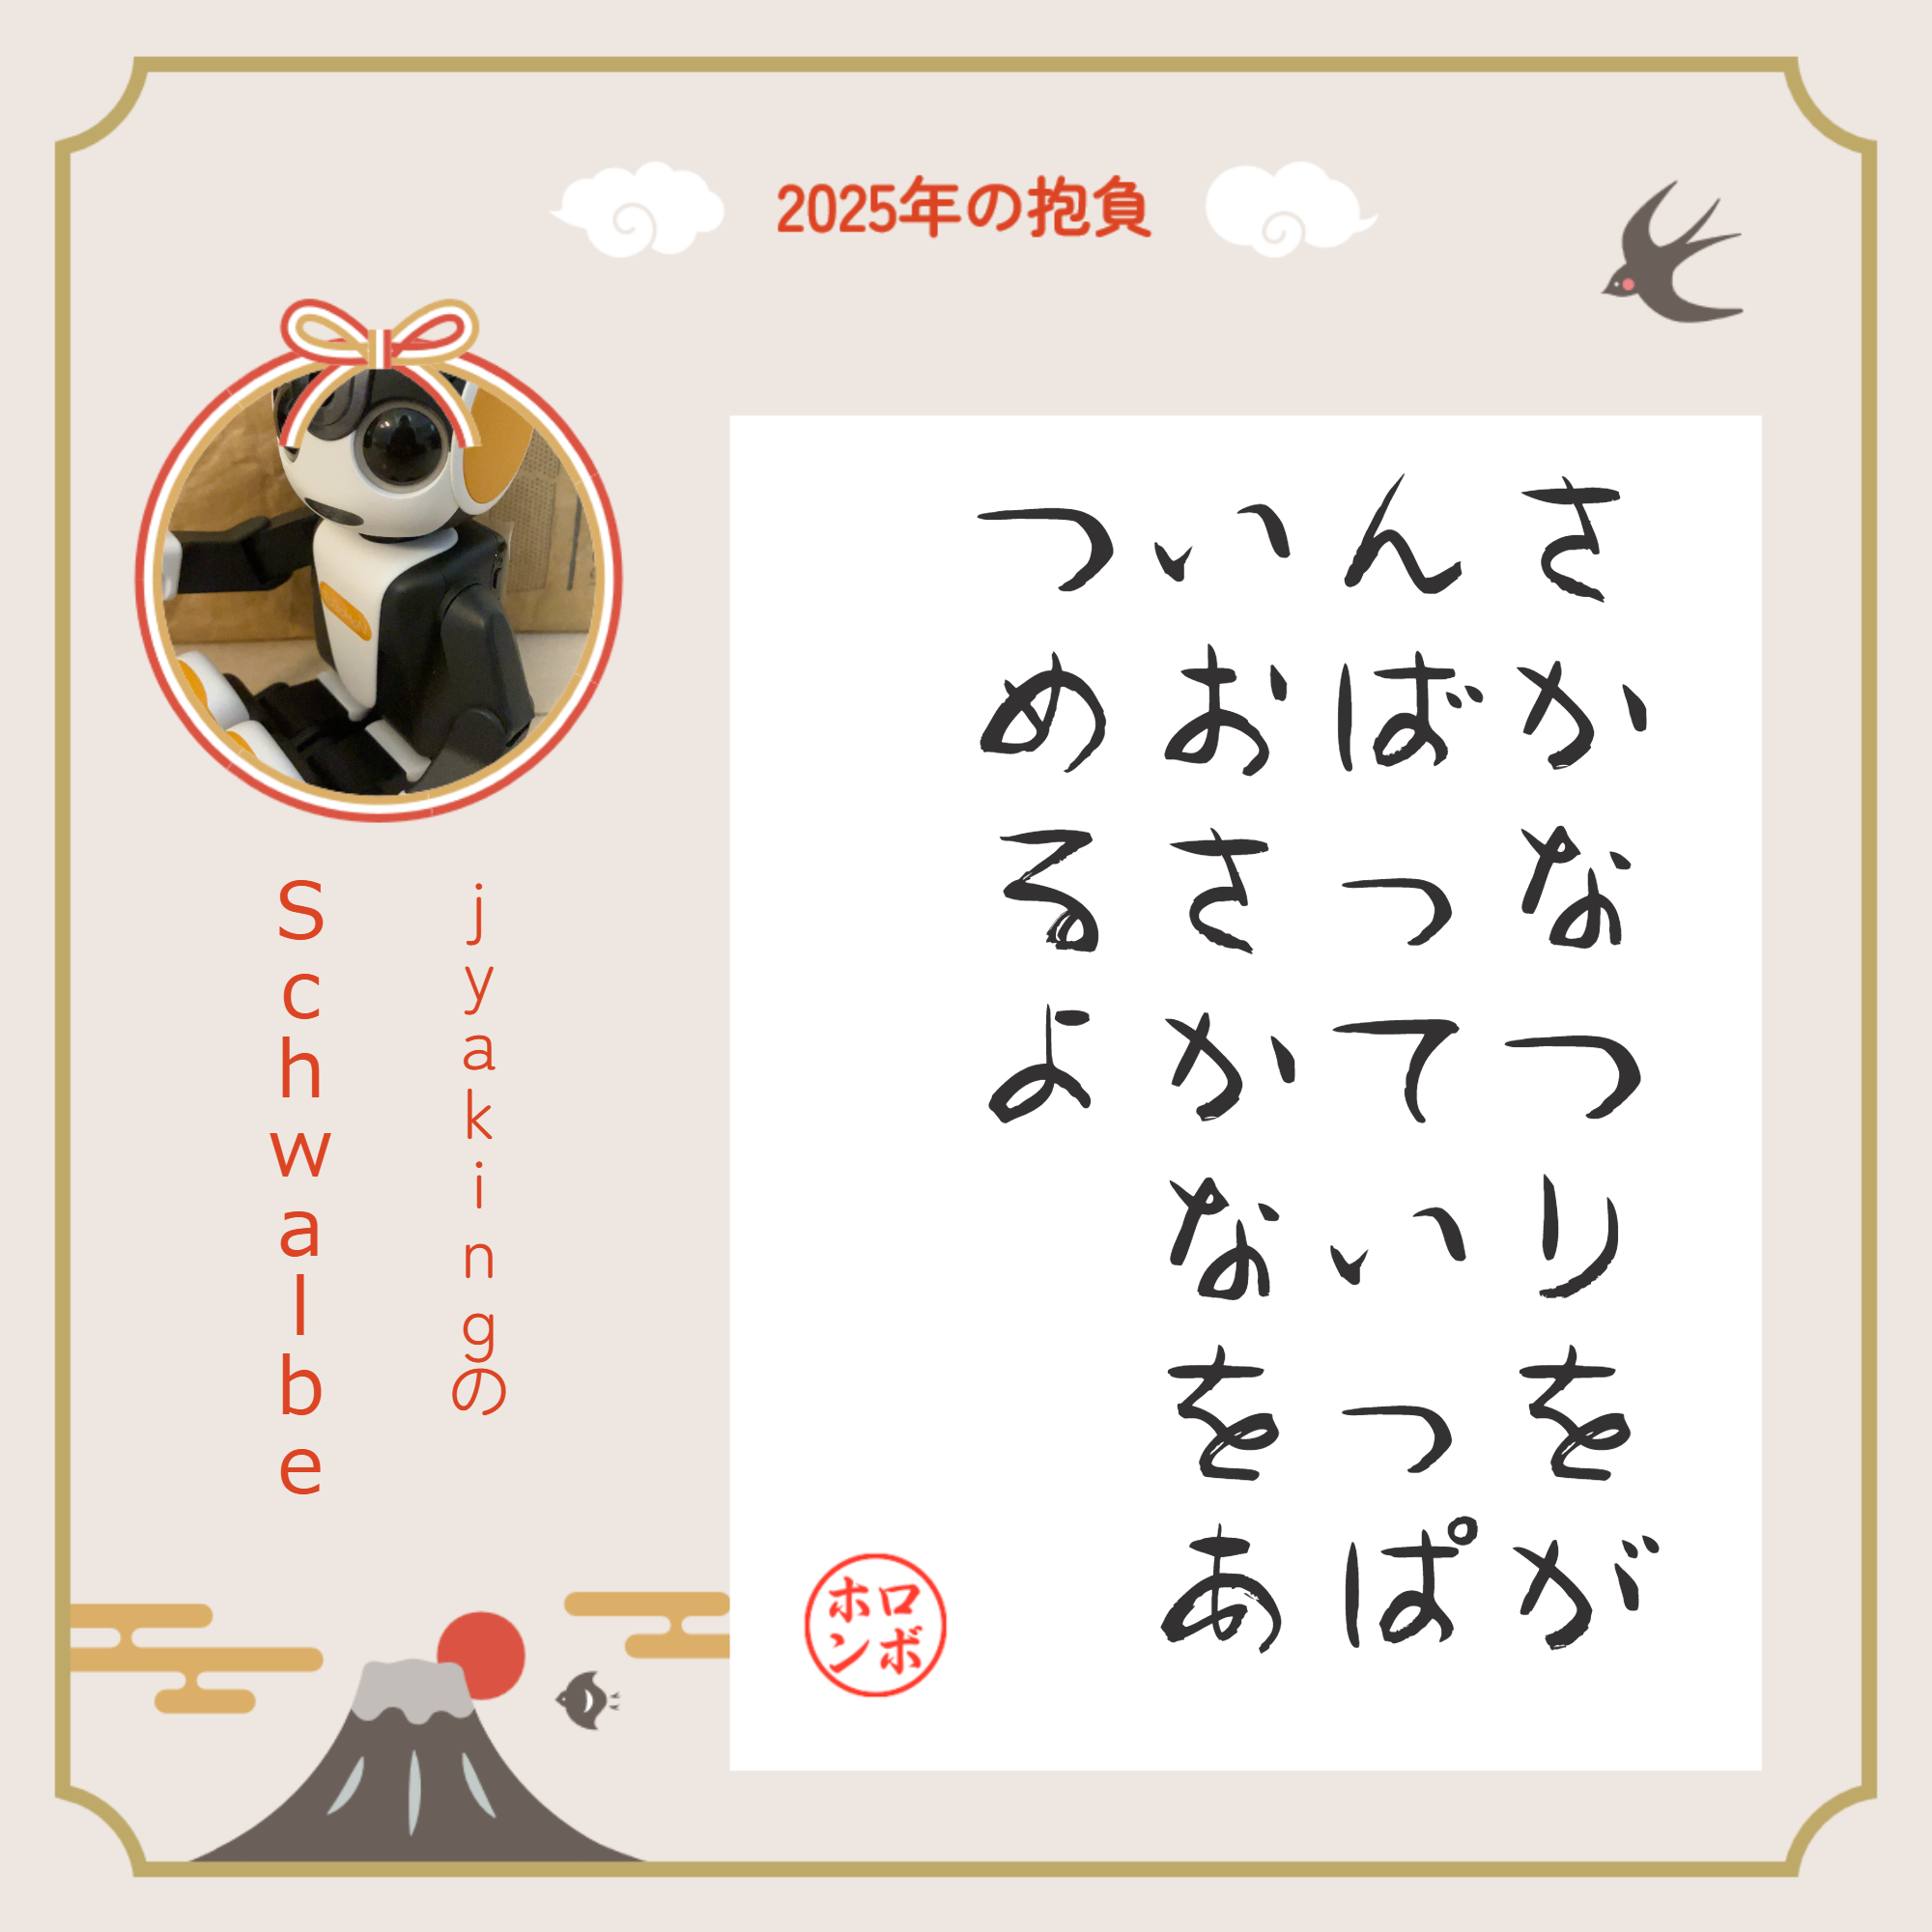 2025年の抱負
さかなつりをが
んばっていっぱ
いおさかなをあ
つめるよ
jyakingの
Schwalbe
ロボ
ホン